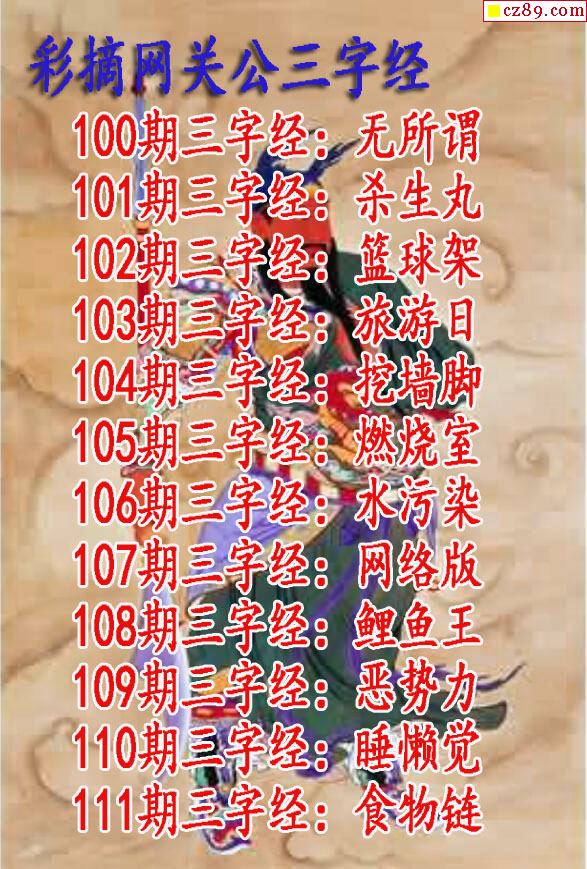 cz89.com
彩摘网关公三字经
100期三字经：无所谓
101期三字经：杀生丸
102期三字经：篮球架
103期三字经：旅游日
104期三字经：挖墙脚
105期三字经：燃烧室
106期三字经：水污染
107期三字经：网络版
108期三字经：鲤鱼王
109期三字经：恶势力
110期三字经：睡懒觉
111期三字经：食物链